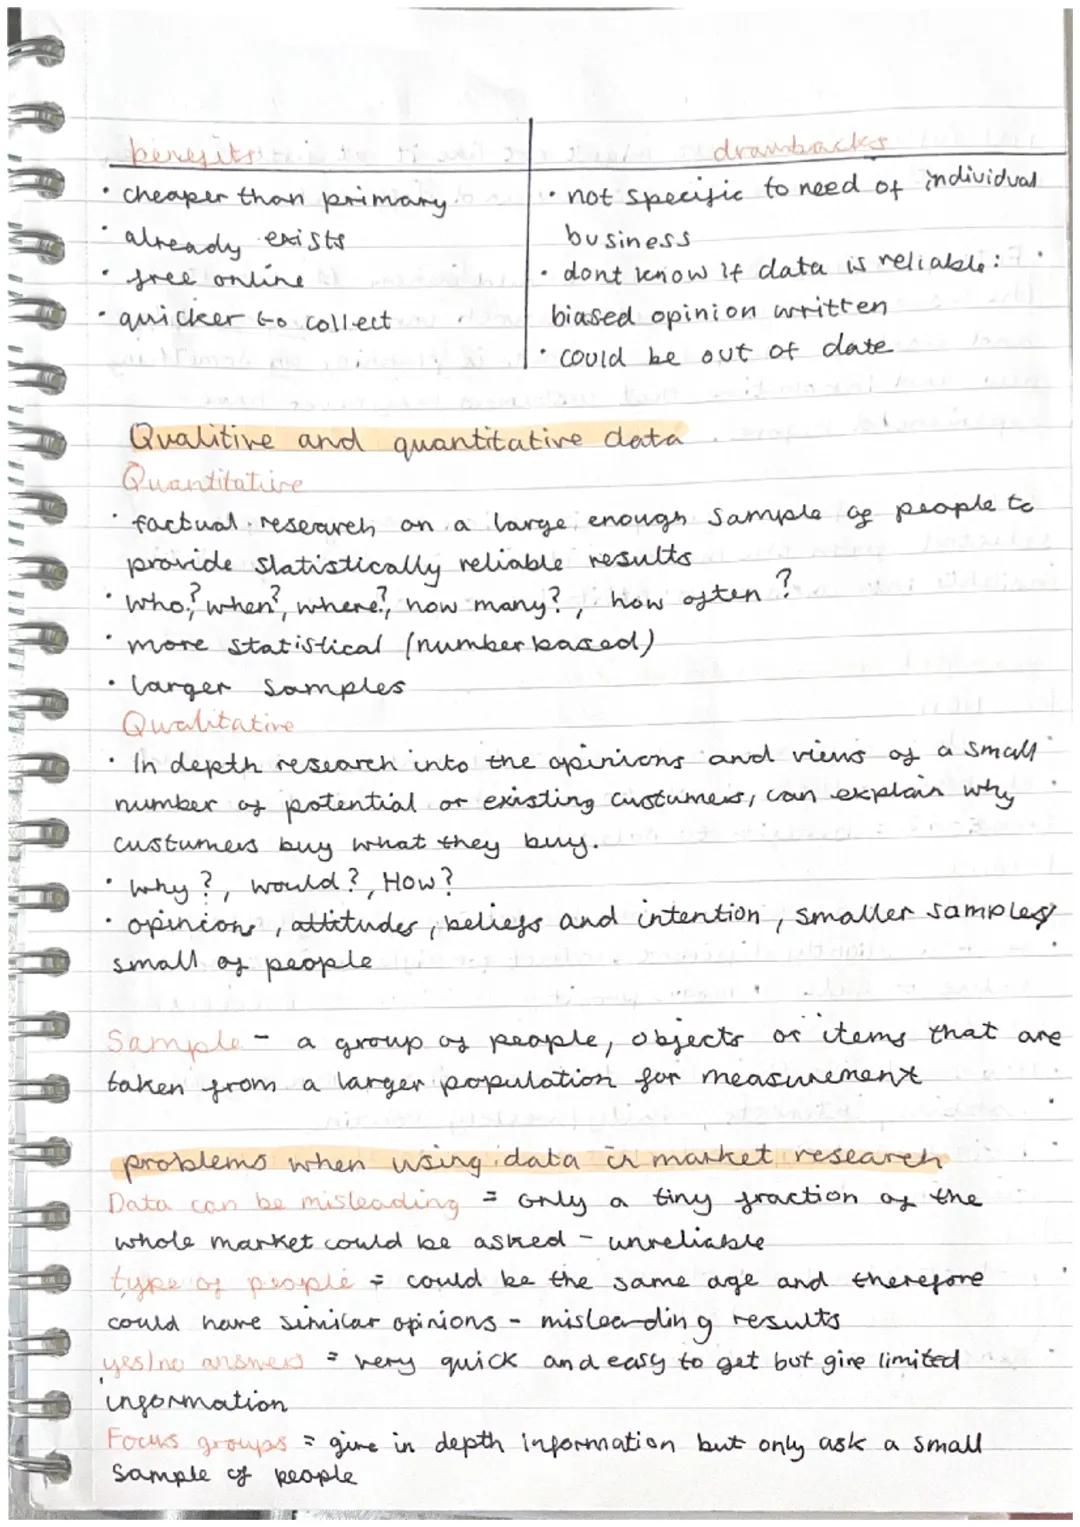 benefits drawbacks
• cheaper than primary
• already exists
• free online
• quicker to collect
• not specific to need of individual
business
• dont know if data is reliable:
biased opinion written
• could be out of date
Qualitive and quantitative data
Quantitative
• factual research on a large enough sample of people to
provide statistically reliable results
• who?, when?, where?, how many?, how often?
• more statistical (number based)
• larger samples
Qualitative
• In depth research into the opinions and views of a small
number of potential or existing custumers, can explain why
custumers buy what they buy.
• why?, would?, How?
• opinions, attitudes, beliefs and intention, smaller samples/
small of people
Sample - a group of people, objects or items that are
taken from a larger population for measurement
problems when using data in market research
Data can be misleading = only a tiny fraction of the
whole market could be asked - unreliable
type of people = could be the same age and therefore
could have similar opinions - misleading results
yes/no answers = very quick and easy to get but give limited
information
Focus groups = give in depth information but only ask a small
sample of people